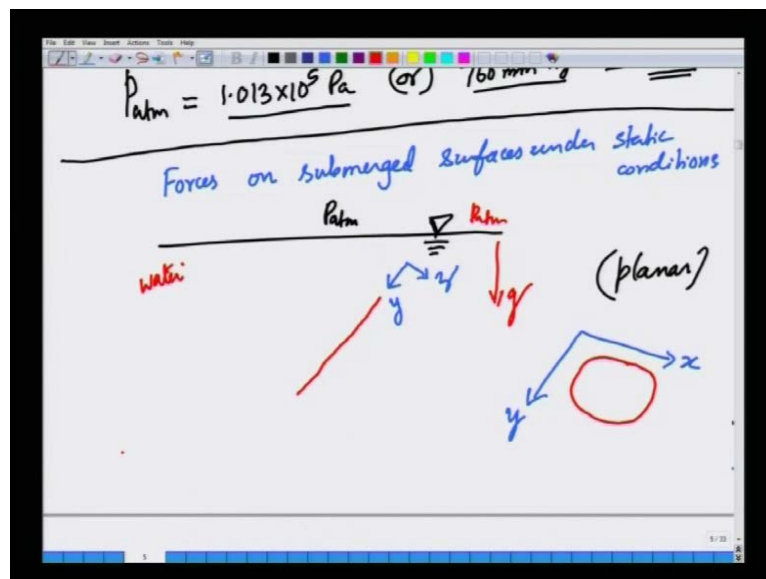 File Edit View Insert Actions Tools Help
Patm = 1.013×10⁵ Pa (or) 760 mm
Forces on submerged surfaces under static
conditions
Patm Patm
water
y
g
(planar)
x
y
5/33
5